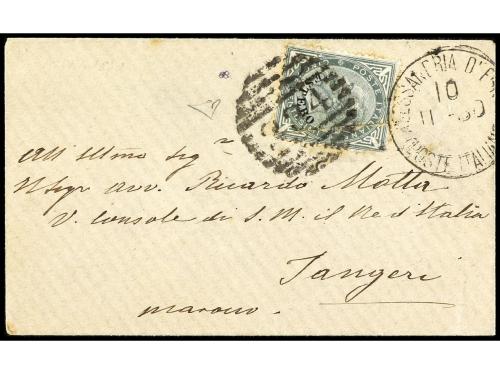 ALESSANDRIA D'E
10
11 80
POSTE ITALIANE
ESTERO
POSTE ITALIANE
All' Illmo Sigr
Nsgr avv. Ricardo Motta
V. Console di S. M. il Re d'Italia
Tangeri
marocco.